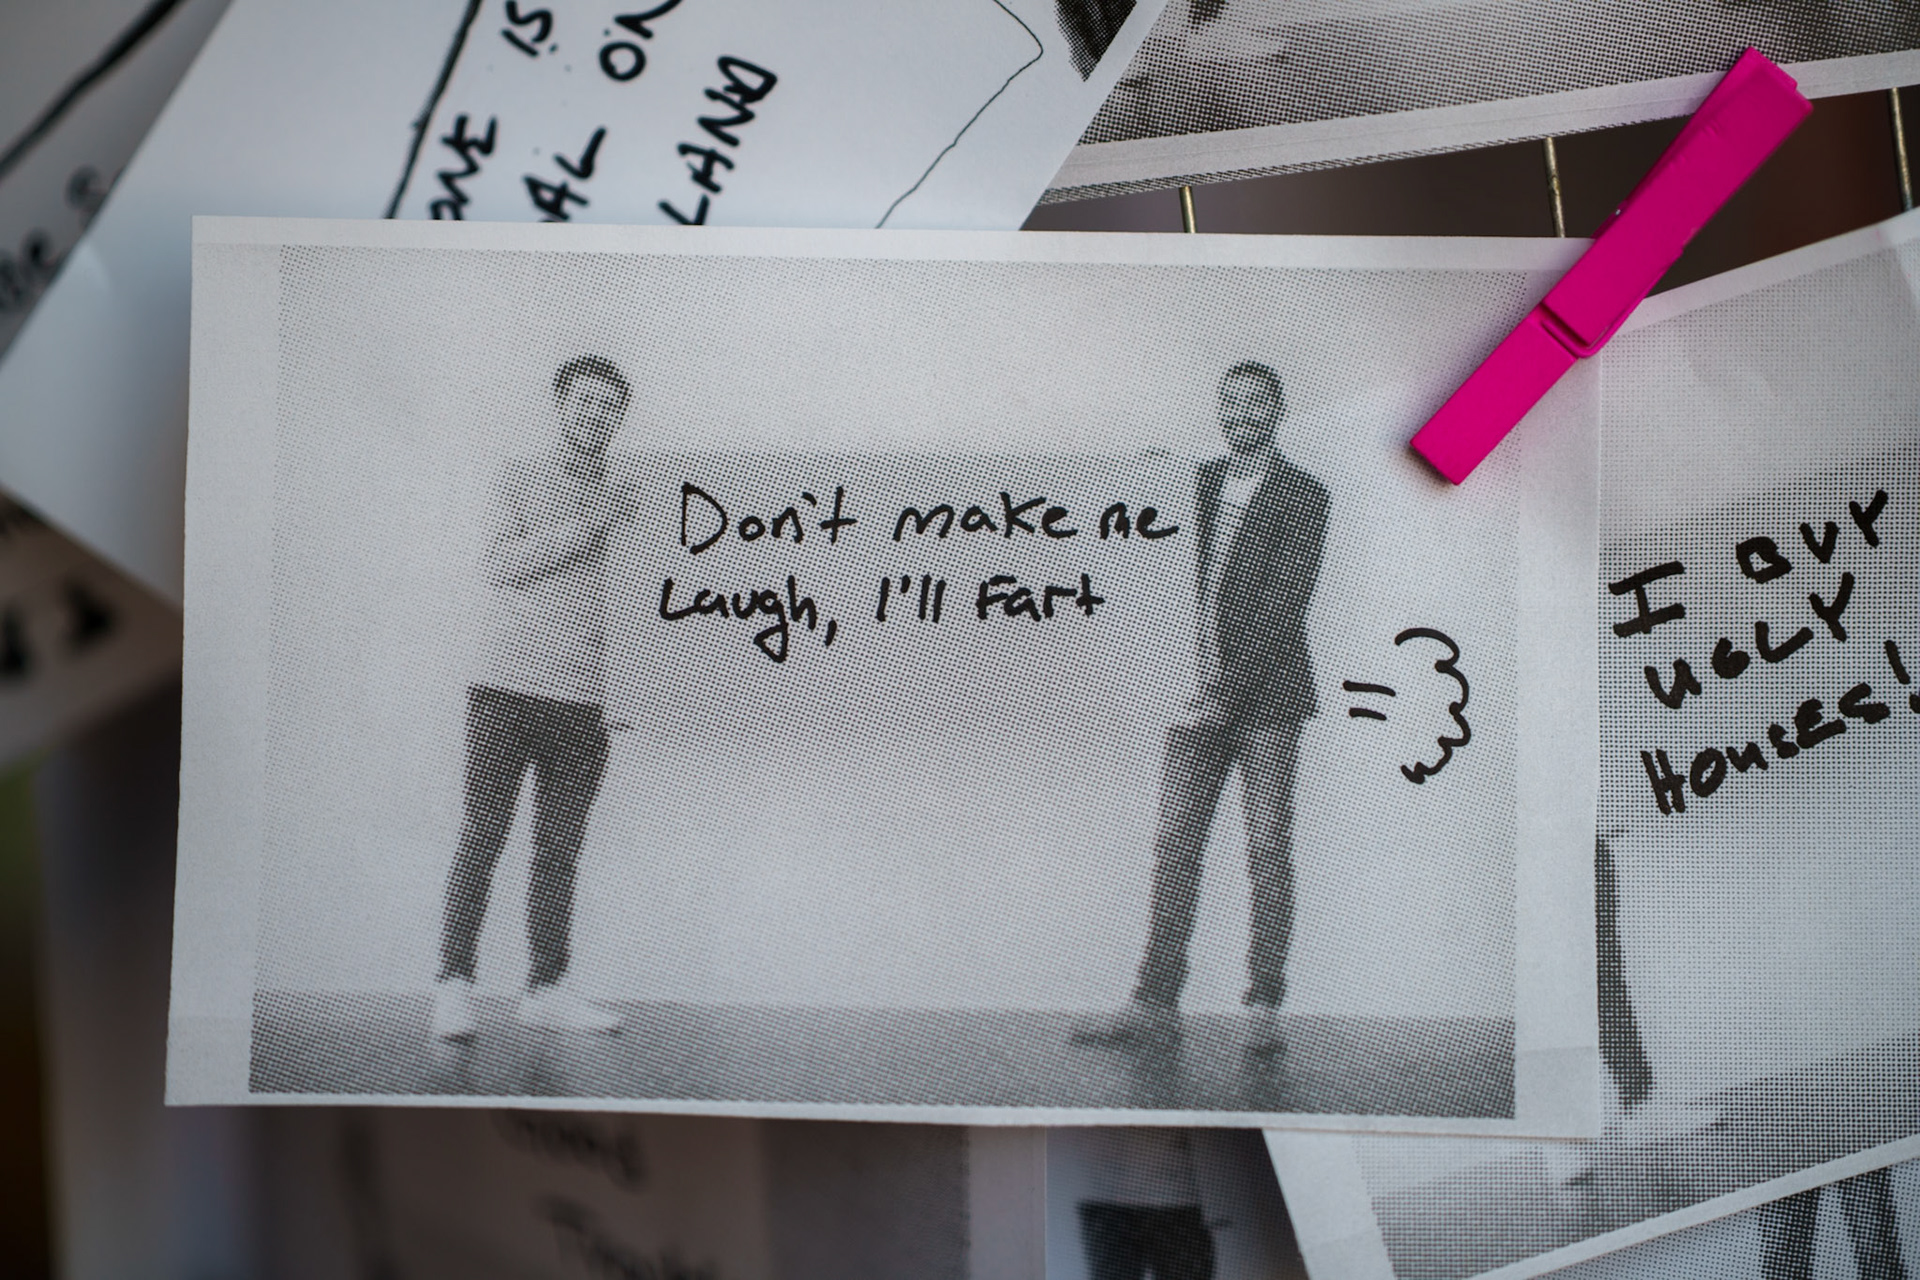 IS
ON
LAND
Don't make me
Laugh, I'll Fart
I BUY
UGLY
HOUSES!